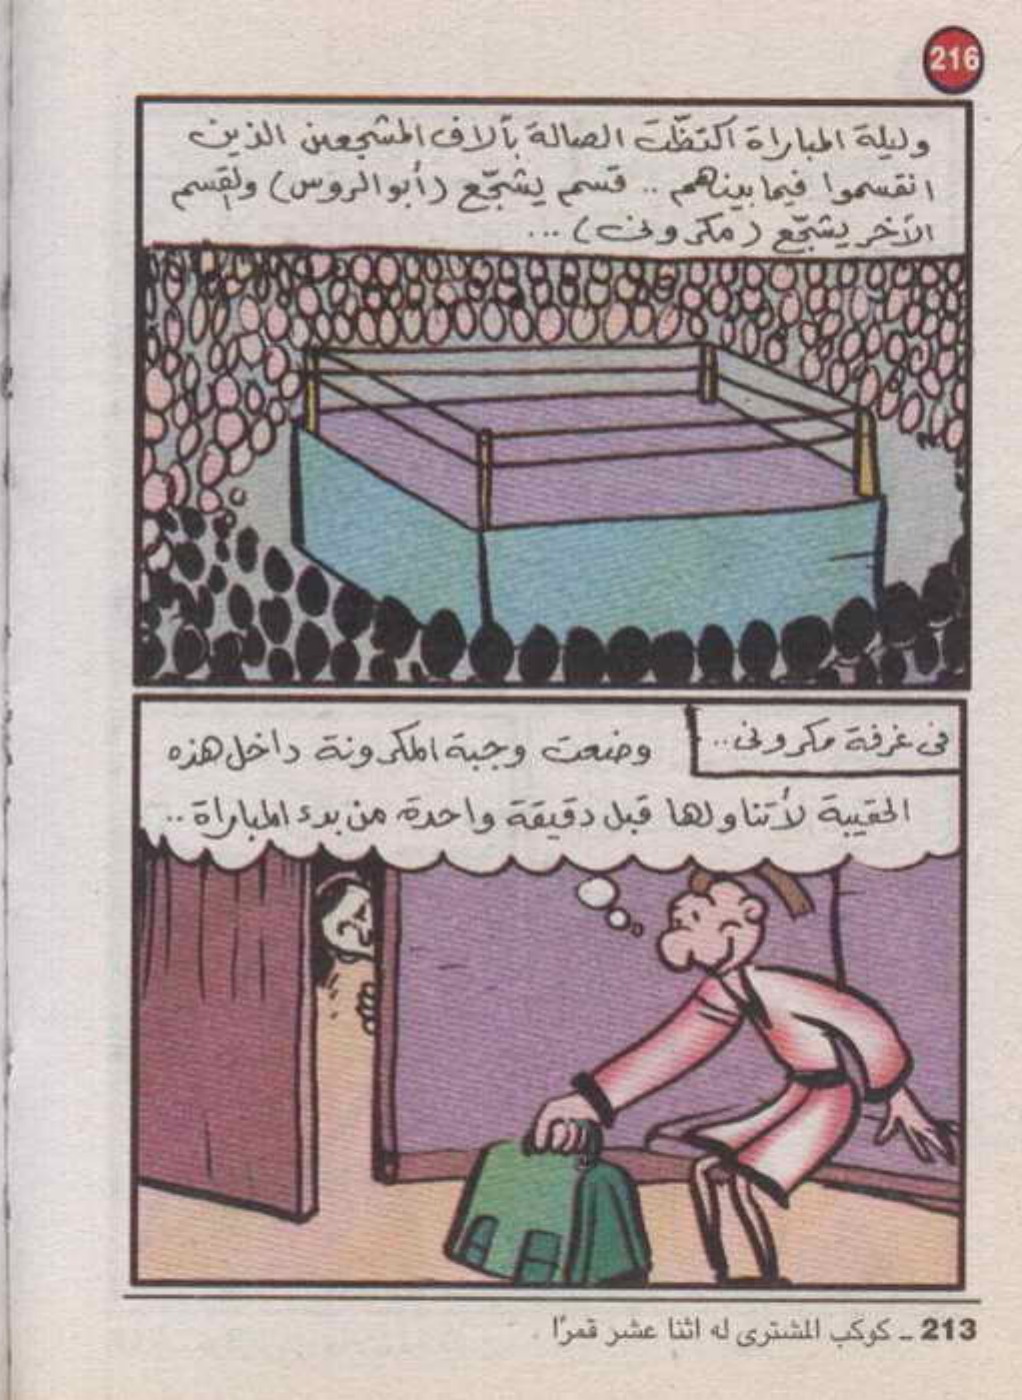 216
وليلة المباراة اكتظّت الصالة بآلاف المشجعين الذين
انقسموا فيما بينهم .. قسم يشجّع (أبو الروس) والقسم
الآخر يشجّع (مكرونى) ...
فى غرفة مكرونى..
وضعت وجبة المكرونة داخل هذه
الحقيبة لأتناولها قبل دقيقة واحدة من بدء المباراة ..
213 ـ كوكب المشترى له اثنا عشر قمرًا .